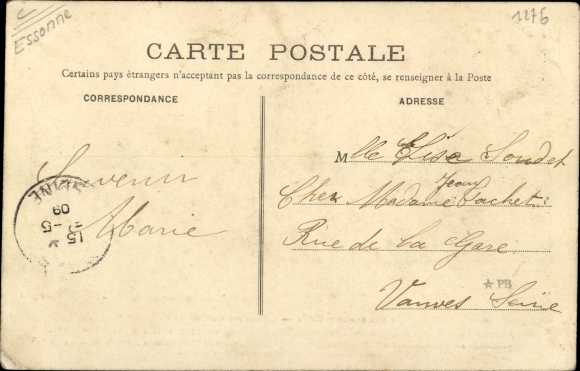 C
Essonne
1276
CARTE POSTALE
Certains pays étrangers n'acceptant pas la correspondance de ce côté, se renseigner à la Poste
CORRESPONDANCE
ADRESSE
Souvenir
Marie
Mlle Lisa Soudet
Jean
Chez Madame Pachet
Rue de la Gare
Vanves Seine
PB
15
-5
09